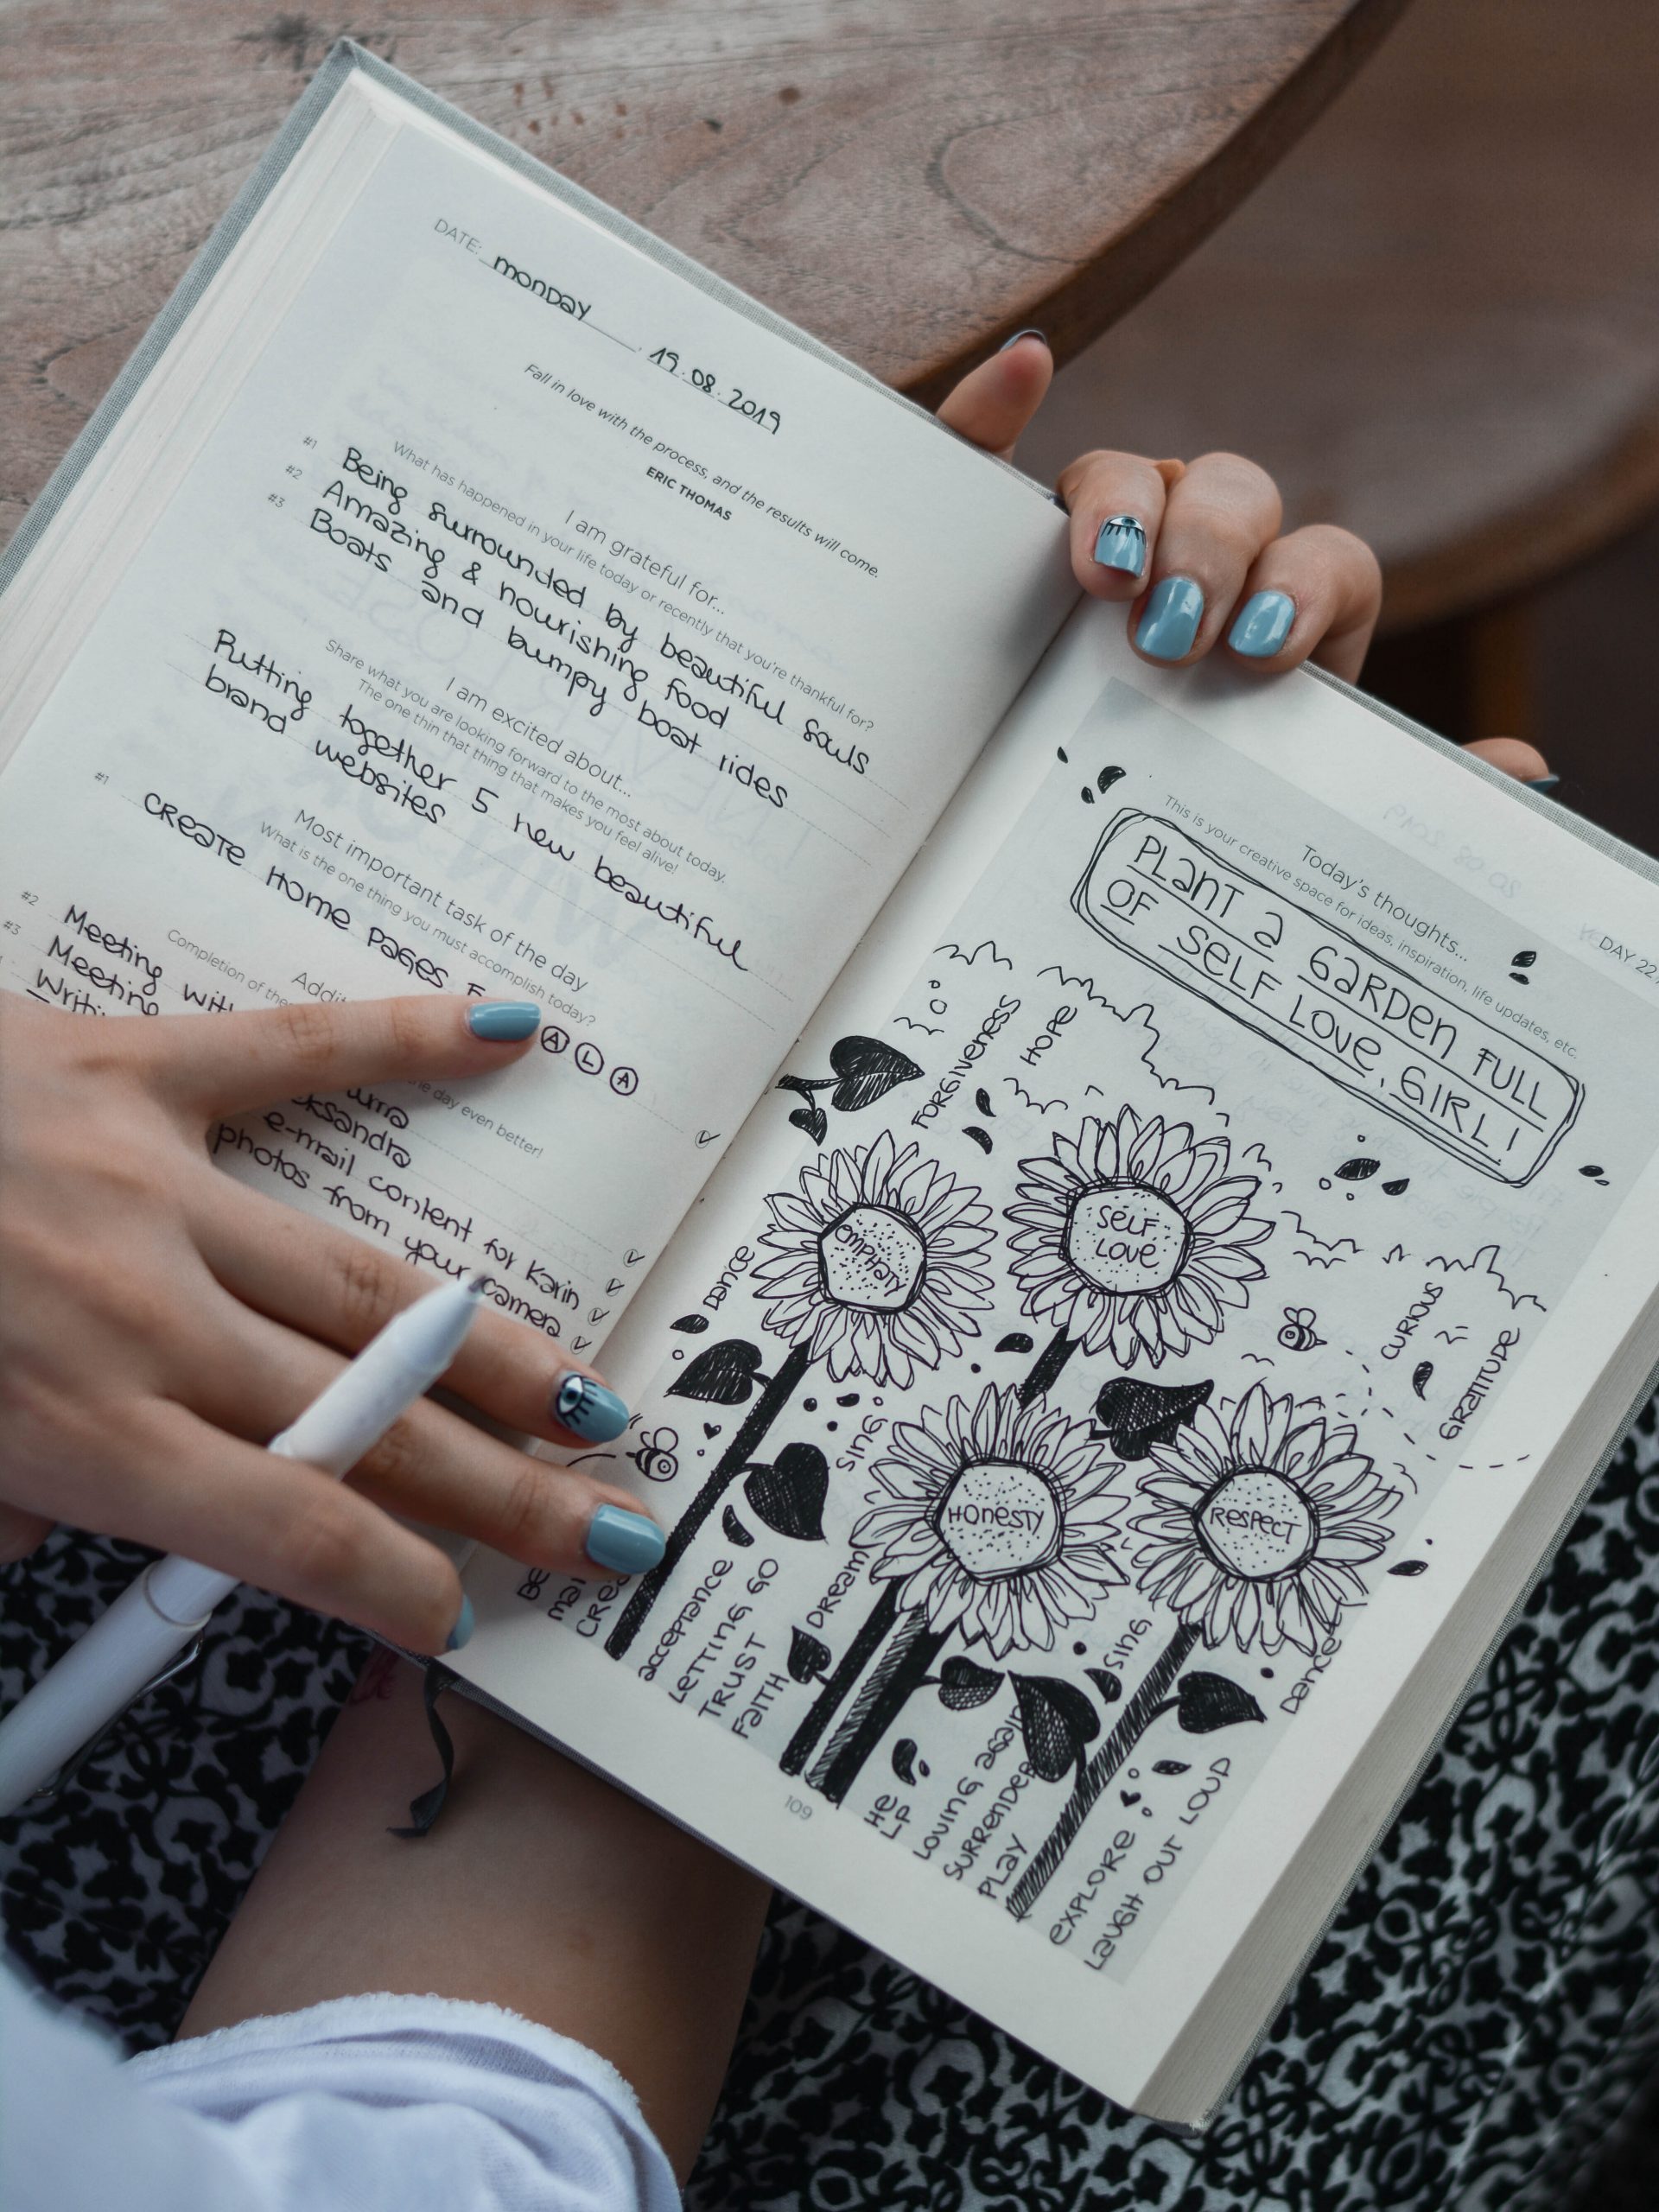 DATE: monday, 19.08.2019
Fall in love with the process, and the results will come.
ERIC THOMAS
I am grateful for...
What has happened in your life today or recently that you're thankful for?
#1 Being surrounded by beautiful souls
#2 Amazing & nourishing food
#3 Boats and bumpy boat rides
I am excited about...
Share what you are looking forward to the most about today.
The one thin that thing that makes you feel alive!
Putting together 5 new beautiful
brand websites
Most important task of the day
What is the one thing you must accomplish today?
#1 CREATE HOME PAGES
A L A
Completion of the day even better!
#2 Meeting
#3 Meeting
e-mail content for Karin
photos from your camera
DAY 22
Today's thoughts...
This is your creative space for ideas, inspiration, life updates, etc.
PLANT A GARDEN FULL
OF SELF LOVE, GIRL!
FORGIVENESS
HOPE
EMPHATY
SELF
LOVE
DANCE
CURIOUS
GRATITUDE
SING
HONESTY
RESPECT
ACCEPTANCE
LETTING GO
TRUST
FAITH
DREAM
SING
DANCE
HE
LP
LOVING AGAIN
SURRENDER
PLAY
EXPLORE
LAUGH OUT LOUD
109